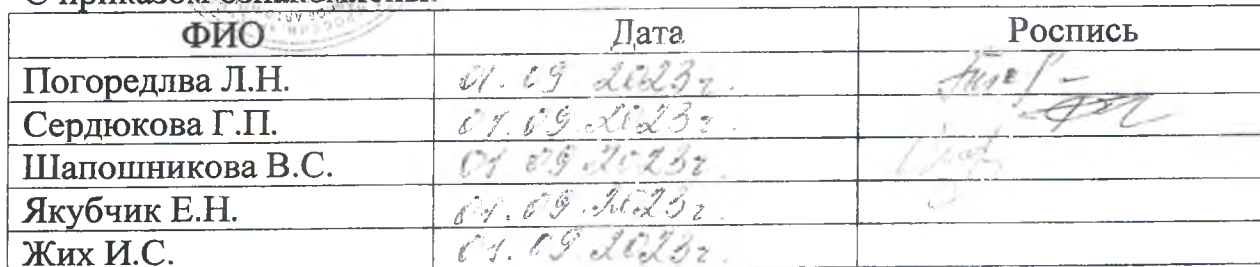 С приказом ознакомлены:
ФИО Дата Роспись
Погоредлва Л.Н. 01.09.2023г.
Сердюкова Г.П. 01.09.2023г.
Шапошникова В.С. 01.09.2023г.
Якубчик Е.Н. 01.09.2023г.
Жих И.С. 01.09.2023г.